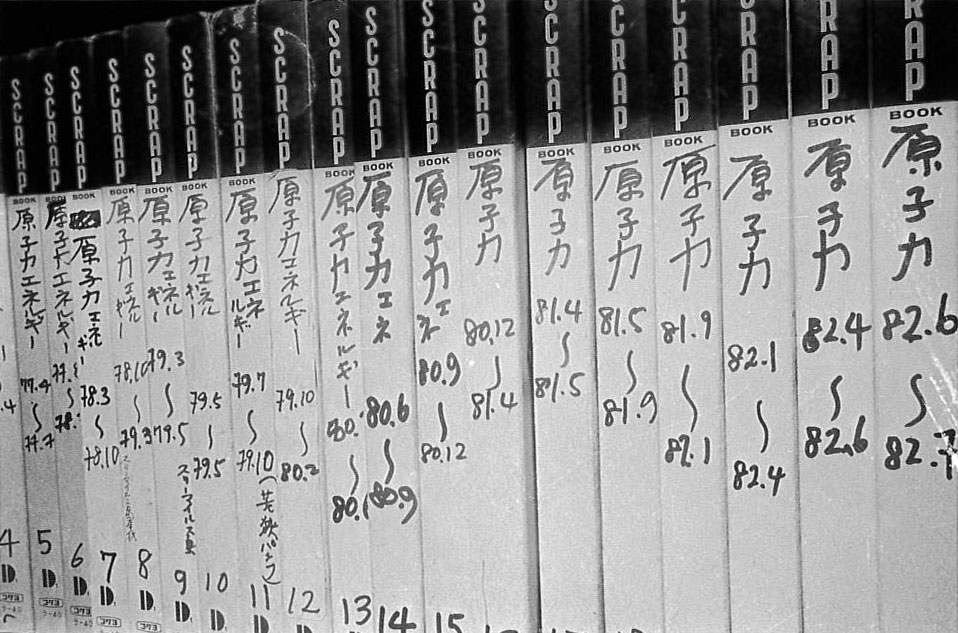 SCRAP
BOOK
原子力エネルギー
77.4
〜
77.7
5
SCRAP
BOOK
原子力エネルギー
6
SCRAP
BOOK
原子力エネルギー
78.3
〜
78.10
7
SCRAP
BOOK
原子力エネルギー
78.10
〜
79.3
8
SCRAP
BOOK
原子力エネルギー
79.3
〜
79.5
9
SCRAP
原子力エネルギー
79.5
〜
79.5
スリーマイル
10
SCRAP
BOOK
原子力エネルギー
79.7
〜
79.10
11
SCRAP
原子力エネルギー
79.10
〜
80.2
12
SCRAP
BOOK
原子力エネルギー
13
SCRAP
BOOK
原子力エネ
80.6
〜
80.9
14
SCRAP
BOOK
原子力エネ
80.9
〜
80.12
15
SCRAP
BOOK
原子力
80.12
〜
81.4
SCRAP
BOOK
原子力
81.4
〜
81.5
SCRAP
BOOK
原子力
81.5
〜
81.9
SCRAP
BOOK
原子力
81.9
〜
82.1
SCRAP
BOOK
原子力
82.1
〜
82.4
SCRAP
BOOK
原子力
82.4
〜
82.6
RAP
BOOK
原子力
82.6
〜
82.7